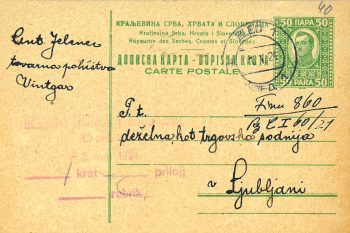 40
КРАЉЕВИНА СРБА, ХРВАТА И СЛОВЕНАЦА
Kraljevina Srba, Hrvata i Slovenaca
Royaume des Serbes, Croates et Slovènes
ДОПИСНА КАРТА - DOPISNA KARTA
CARTE POSTALE
50 ПАРА 50
50 PARA 50
BLED 1
Ant. Jelenec
tovarna pohištva
Vintgar
P. t.
Firm 860
Cg I 60/21
deželna, kot trgovska sodnija
v Ljubljani
krat
prilog
rubrik